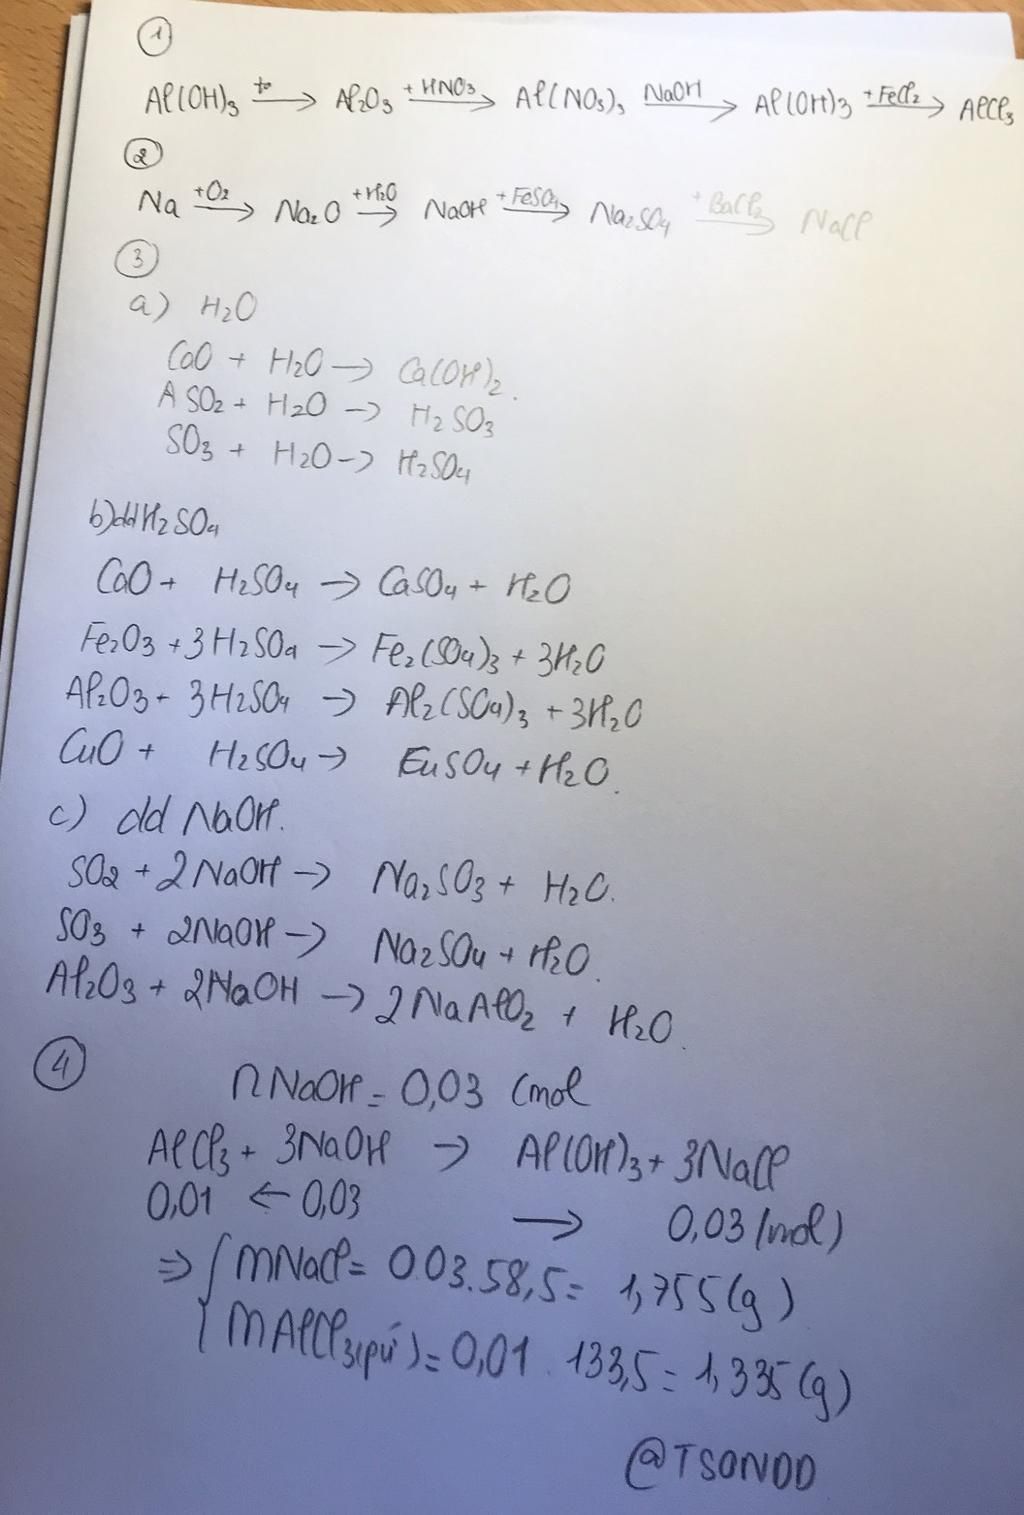 1
Al(OH)3 to → Al2O3 +HNO3 → Al(NO3)3 NaOH → Al(OH)3 +FeCl2 → AlCl3
2
Na +O2 → Na2O +H2O → NaOH +FeSO4 → Na2SO4 +BaCl2 → NaCl
3
a) H2O
CaO + H2O → Ca(OH)2.
A SO2 + H2O → H2SO3
SO3 + H2O → H2SO4
b) dd H2SO4
CaO + H2SO4 → CaSO4 + H2O
Fe2O3 + 3H2SO4 → Fe2(SO4)3 + 3H2O
Al2O3 + 3H2SO4 → Al2(SO4)3 + 3H2O
CuO + H2SO4 → EuSO4 + H2O.
c) dd NaOH.
SO2 + 2NaOH → Na2SO3 + H2O.
SO3 + 2NaOH → Na2SO4 + H2O.
Al2O3 + 2NaOH → 2NaAlO2 + H2O.
4
nNaOH = 0,03 (mol
AlCl3 + 3NaOH → Al(OH)3 + 3NaCl
0,01 ← 0,03 → 0,03 (mol)
⇒ { mNaCl = 0.03.58,5 = 1,755 (g)
{ mAlCl3(pứ) = 0,01 . 133,5 = 1,335 (g)
@TSONDD